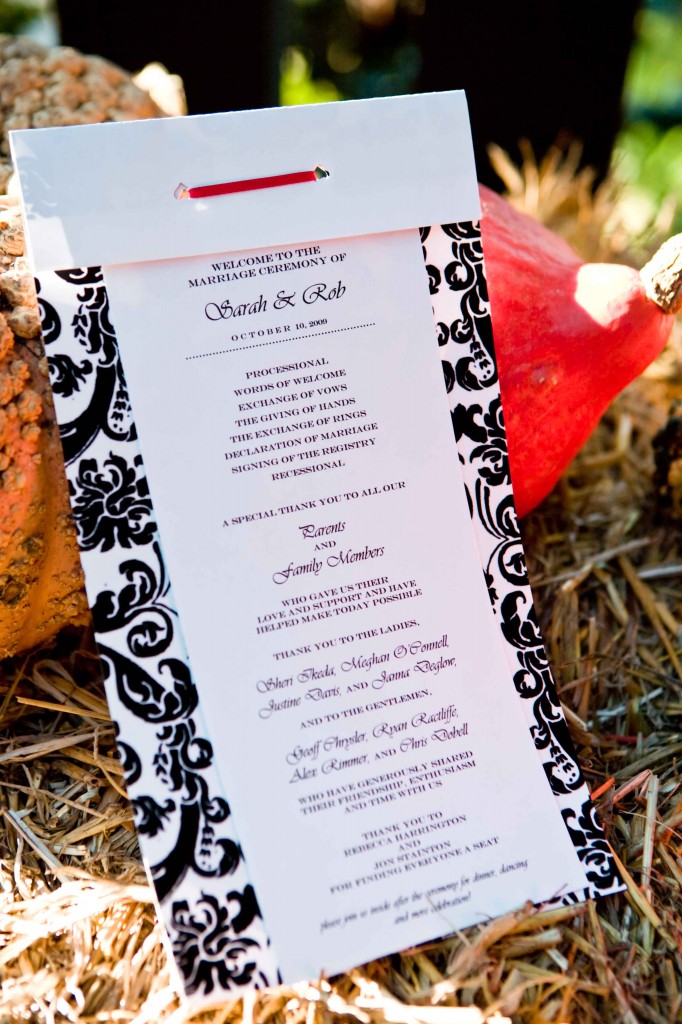 WELCOME TO THE
MARRIAGE CEREMONY OF
Sarah & Rob
OCTOBER 10, 2009
PROCESSIONAL
WORDS OF WELCOME
EXCHANGE OF VOWS
THE GIVING OF HANDS
THE EXCHANGE OF RINGS
DECLARATION OF MARRIAGE
SIGNING OF THE REGISTRY
RECESSIONAL
A SPECIAL THANK YOU TO ALL OUR
Parents
AND
Family Members
WHO GAVE US THEIR
LOVE AND SUPPORT AND HAVE
HELPED MAKE TODAY POSSIBLE
THANK YOU TO THE LADIES,
Sheri Ikeda, Meghan O'Connell,
Justine Davis, AND Janna Deglow,
AND TO THE GENTLEMEN,
Geoff Chrysler, Ryan Ratcliffe,
Alex Rimmer, AND Chris Dobell
WHO HAVE GENEROUSLY SHARED
THEIR FRIENDSHIP, ENTHUSIASM
AND TIME WITH US
THANK YOU TO
REBECCA HARRINGTON
AND
JON STAINTON
FOR FINDING EVERYONE A SEAT
please join us inside after the ceremony for dinner, dancing
and more celebration!